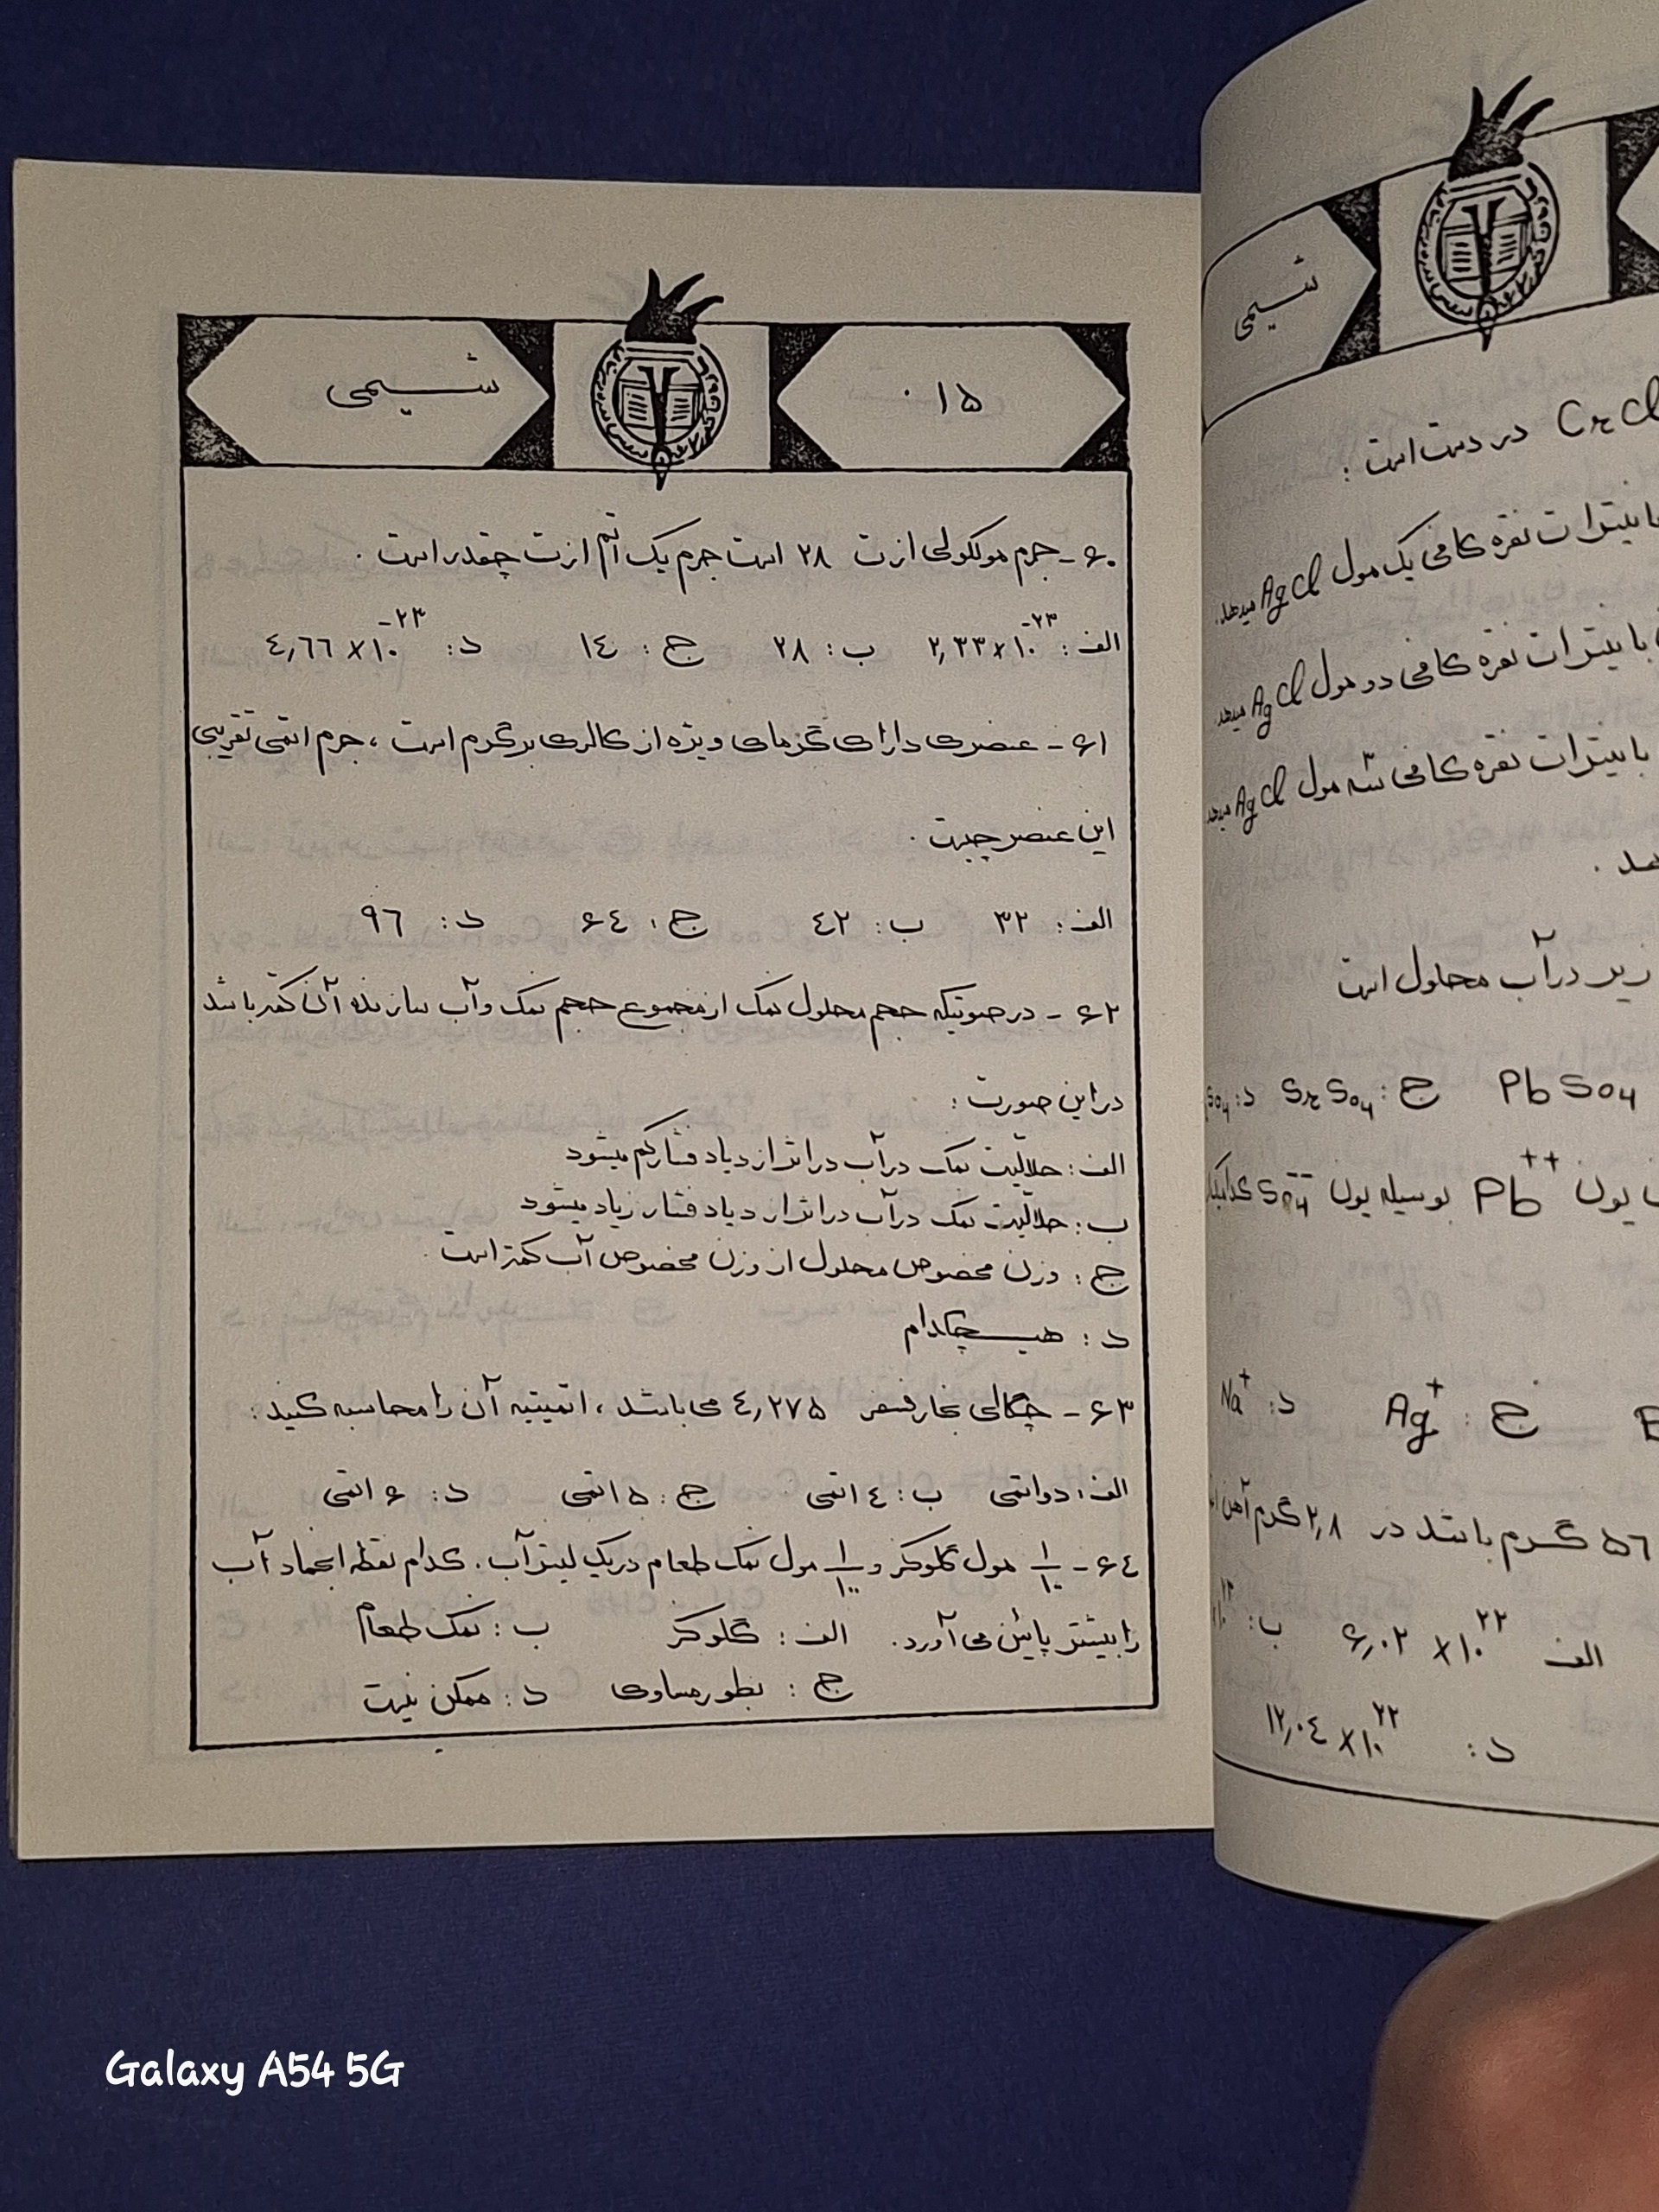 ۰۱۵
شیمی
۶۰- جرم مولکولی ازت ۲۸ است جرم یک اتم ازت چقدر است .
الف: ۲٫۳۳×۱۰⁻²³ ب: ۲۸ ج: ۱۴ د: ۴٫۶۶×۱۰⁻²³
۶۱- عنصری دارای گرمای ویژه از کالری بر گرم است ، جرم اتمی تقریبی
این عنصر چیست .
الف: ۳۲ ب: ۴۲ ج: ۶۴ د: ۹۶
۶۲- در صورتیکه حجم محلول نمک از مجموع حجم نمک و آب سازنده آن کمتر باشد
در این صورت :
الف: حلالیت نمک در آب در اثر ازدیاد فشار کم میشود
ب: حلالیت نمک در آب در اثر ازدیاد فشار زیاد میشود
ج: وزن مخصوص محلول از وزن مخصوص آب کمتر است .
د: هیچکدام
۶۳- چگالی بخار فسفر ۴٫۲۷۵ می باشد ، اتمیتیه آن را محاسبه کنید :
الف: دو اتمی ب: ۴ اتمی ج: ۵ اتمی د: ۶ اتمی
۶۴- ۱/۱۰ مول گلوکز و ۱/۱۰۰ مول نمک طعام در یک لیتر آب . کدام نقطه انجماد آب
را بیشتر پائین می آورد . الف: گلوکز ب: نمک طعام
ج: بطور مساوی د: ممکن نیست
شیمی
CrCl در دست است :
با نیترات نقره کافی یک مول AgCl میدهد.
با نیترات نقره کافی دو مول AgCl میدهد.
با نیترات نقره کافی سه مول AgCl میدهد
زیر در آب محلول است
PbSO4 ج: SrSO4 د: SO4
یون Pb++ بوسیله یون SO4--
ج: Ag+ د: Na+
۵۶ گرم باشد در ۲٫۸ گرم آهن
الف ۶٫۰۲×۱۰²² ب:
د: ۱۲٫۰۴×۱۰²²
Galaxy A54 5G